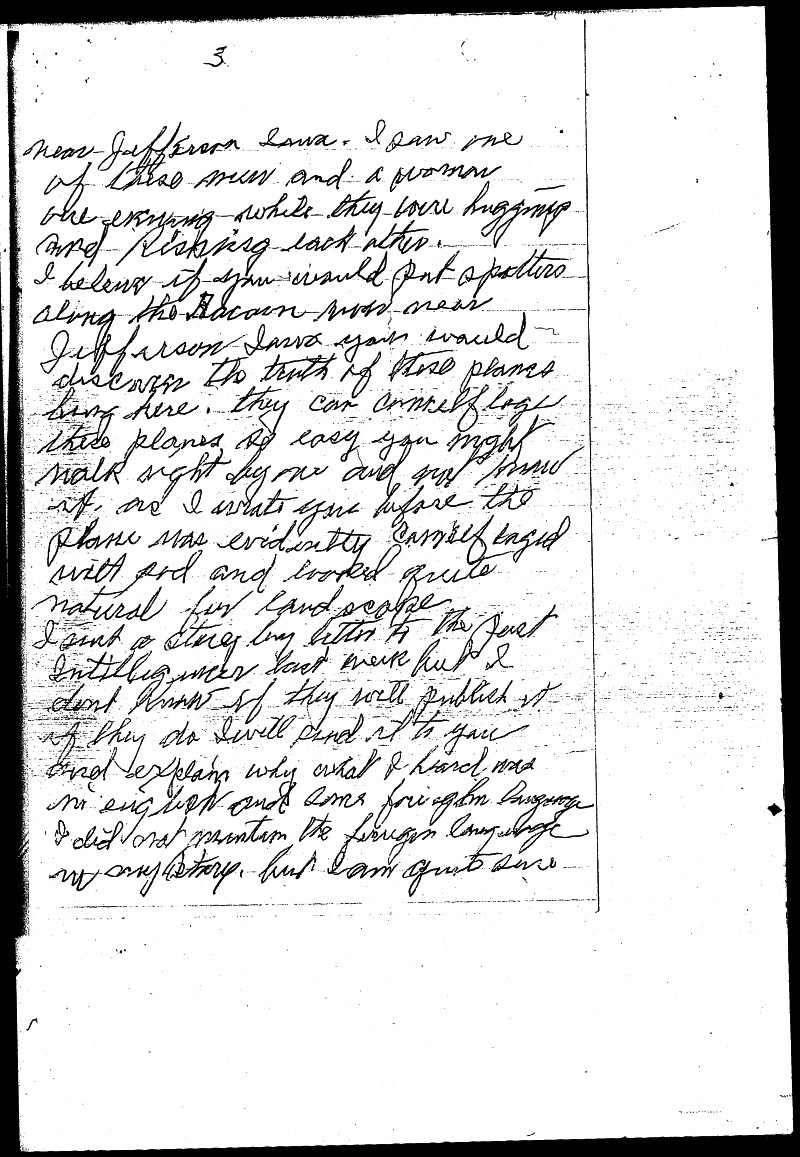 3
near Jefferson Iowa. I saw one
of these men and a woman
one evening while they were hugging
and kissing each other.
I beleive if you would put spotters
along the Racoon river near
Jefferson Iowa you would
discover the truth of these planes
being here. they can camelfloge
these planes so easy you might
walk right by one and not know
it. as I wrote you before the
plane was evidently camelflaged
with sod and looked quite
natural for landscape
I sent a story by letter to the Post
Intelligencer last week but I
dont know if they will publish it
if they do I will send it to you
and explain why what I heard was
in english and some foreighn language
I did not mention the foreign language
in my story. but I am quite sure